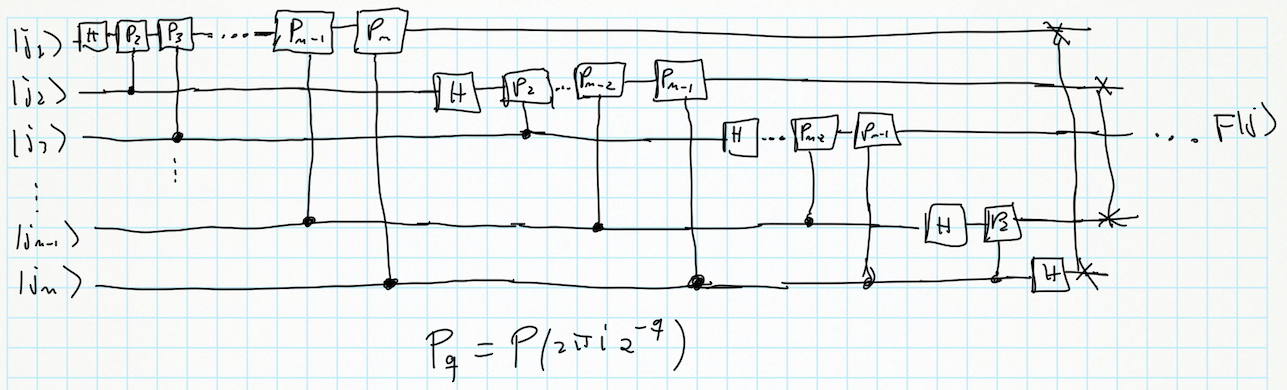 |j₁⟩ H P₂ P₃ ... Pₙ₋₁ Pₙ
|j₂⟩ H P₂ ... Pₙ₋₂ Pₙ₋₁
|j₃⟩ H ... Pₙ₋₂ Pₙ₋₁ ... F|j⟩
⋮
|jₙ₋₁⟩ H P₂
|jₙ⟩ H
P_q = P(2πi2^{-q})